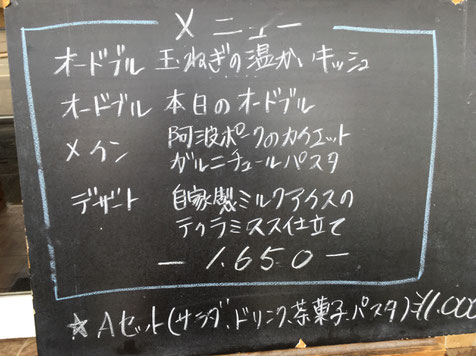 メニュー
オードブル 玉ねぎの温かいキッシュ
オードブル 本日のオードブル
メイン 阿波ポークのカイエット
ガルニチュールパスタ
デザート 自家製ミルクアイスの
ティラミスス仕立て
－1.650－
☆Aセット(サラダ、ドリンク、茶菓子パスタ)¥1.000